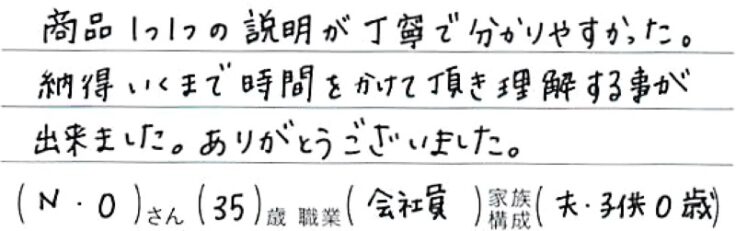 商品1つ1つの説明が丁寧で分かりやすかった。
納得いくまで時間をかけて頂き理解する事が
出来ました。ありがとうございました。
(N・O)さん(35)歳 職業(会社員)家族構成(夫・子供0歳)